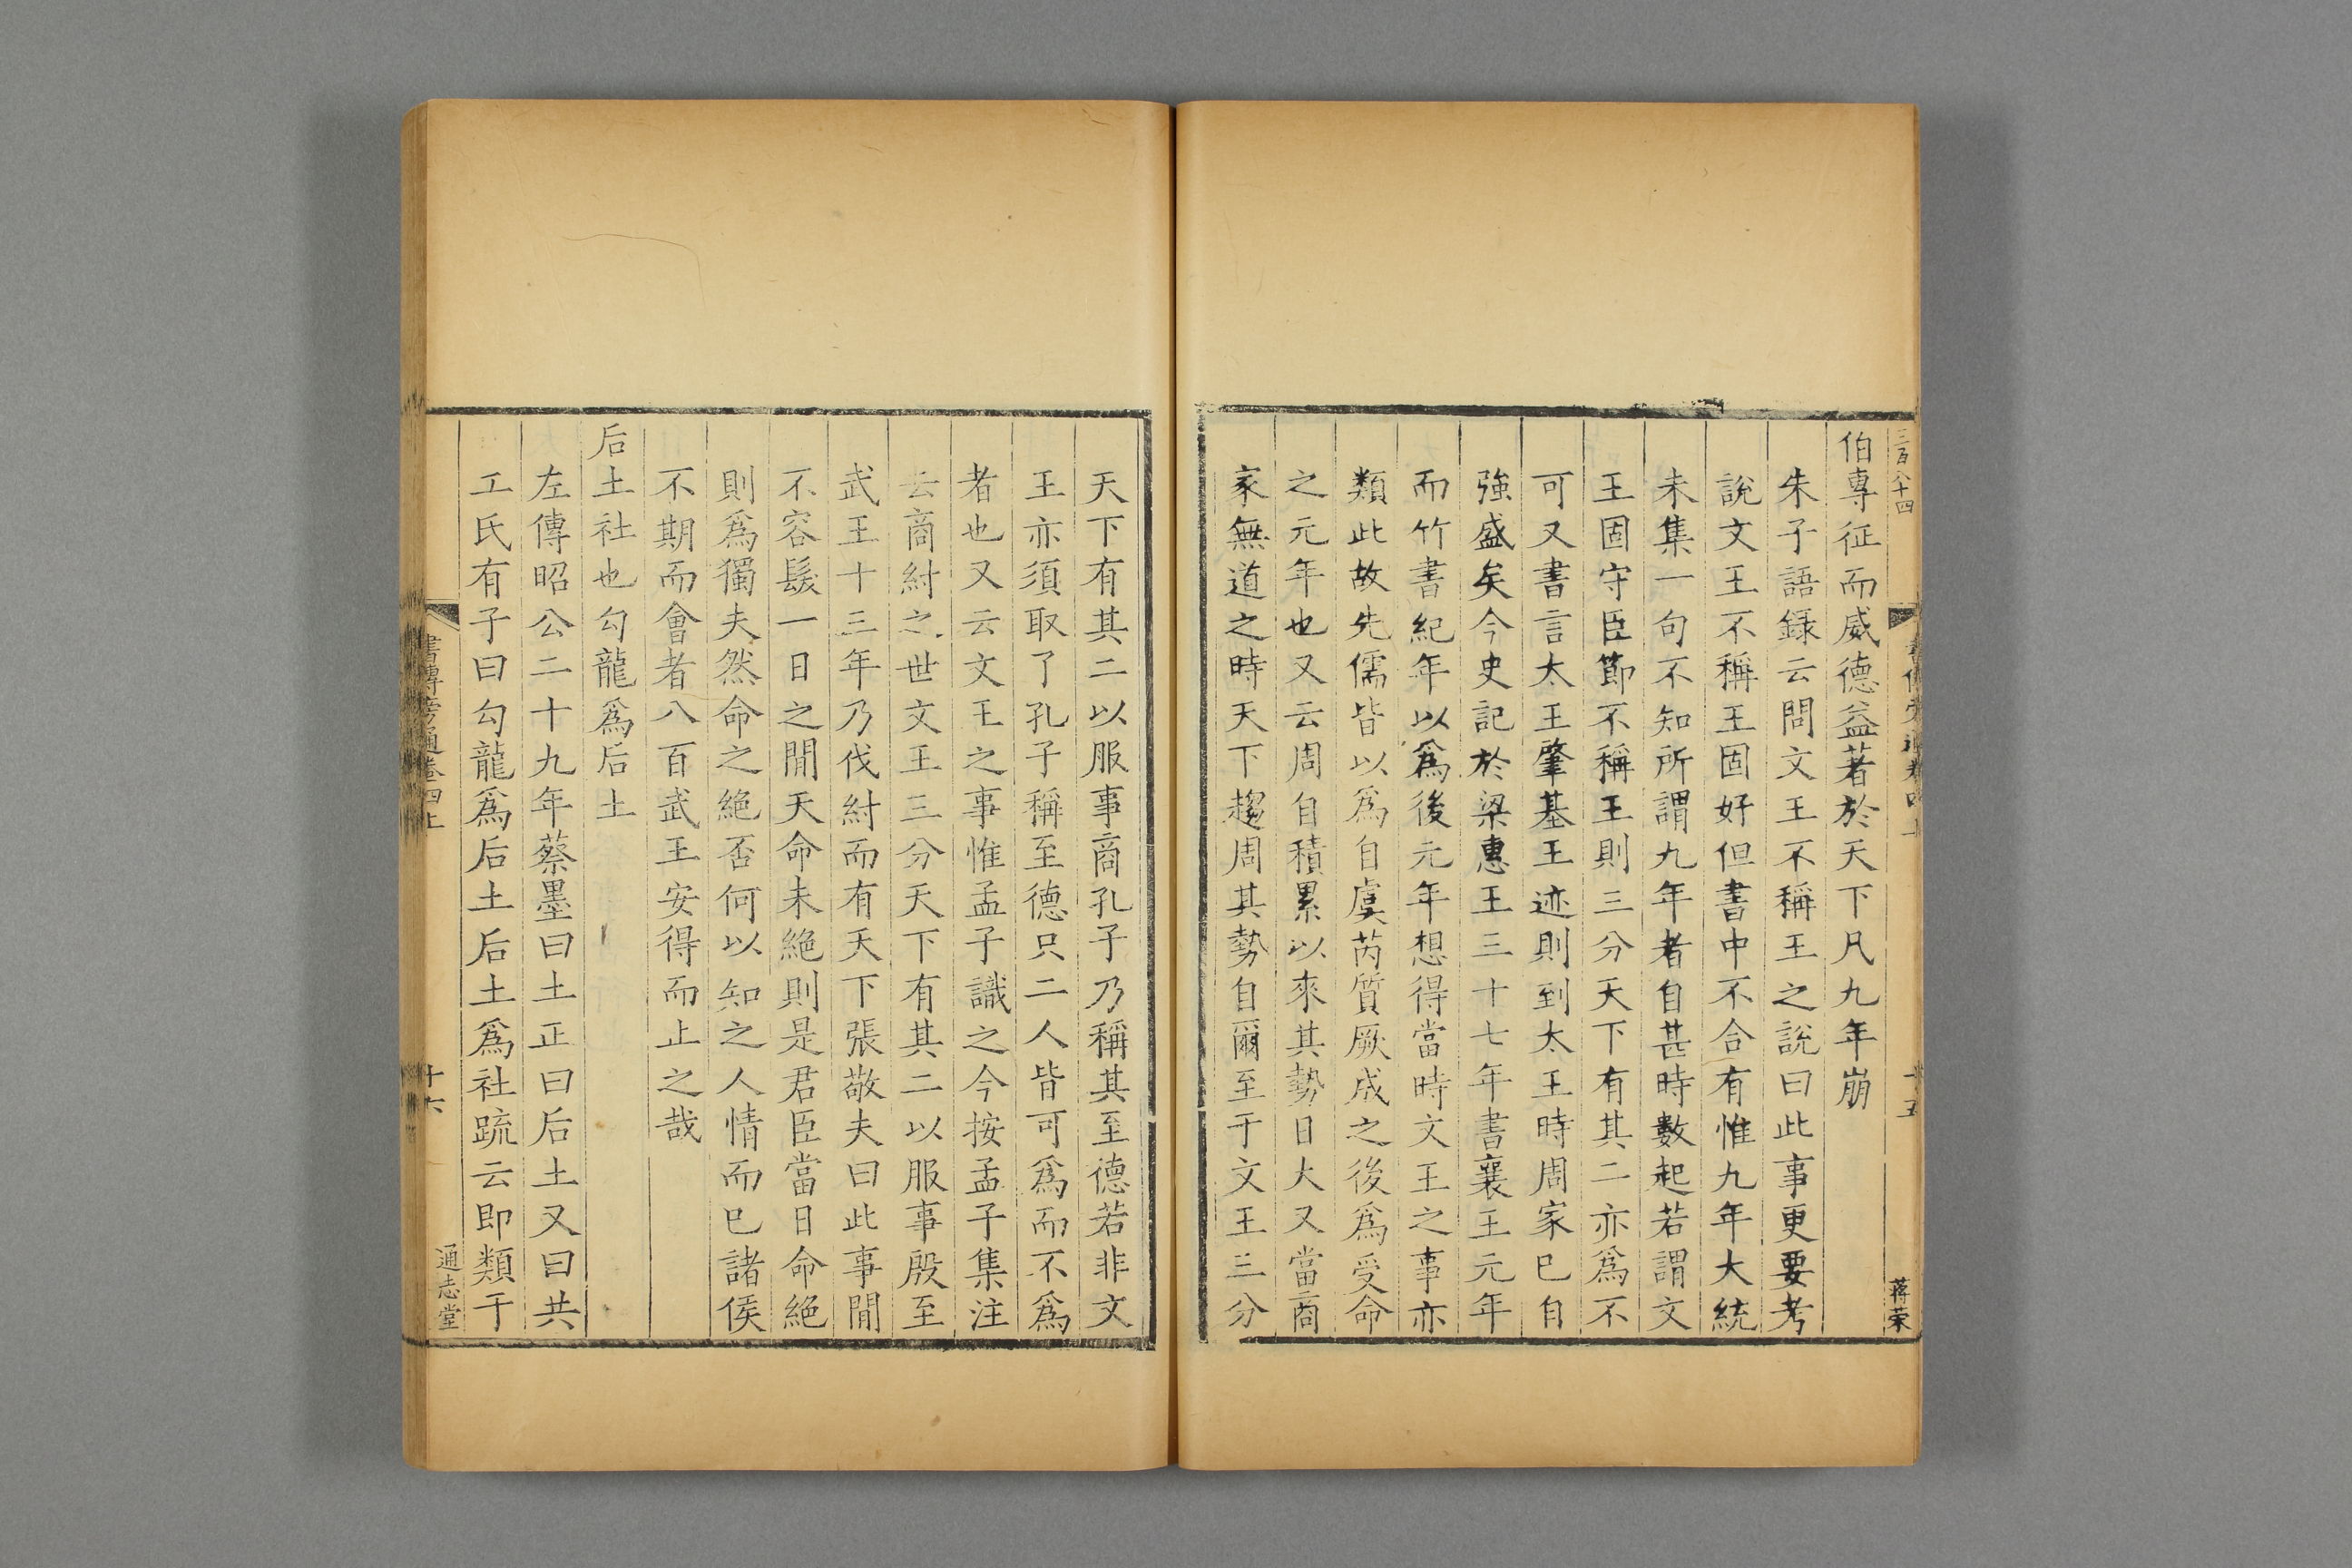 三百八十四
蔣榮
伯專征而威德益著於天下凡九年崩
朱子語録云問文王不稱王之說曰此事更要考
說文王不稱王固好但書中不合有惟九年大統
未集一句不知所謂九年者自甚時數起若謂文
王固守臣節不稱王則三分天下有其二亦爲不
可又書言太王肇基王迹則到太王時周家已自
強盛矣今史記於梁惠王三十七年書襄王元年
而竹書紀年以爲後元年想得當時文王之事亦
類此故先儒皆以爲自虞芮質厥成之後爲受命
之元年也又云周自積累以來其勢日大又當商
家無道之時天下趨周其勢自爾至于文王三分
天下有其二以服事商孔子乃稱其至德若非文
王亦須取了孔子稱至德只二人皆可爲而不爲
者也又云文王之事惟孟子識之今按孟子集注
云商紂之世文王三分天下有其二以服事殷至
武王十三年乃伐紂而有天下張敬夫曰此事閒
不容髮一日之閒天命未絶則是君臣當日命絶
則爲獨夫然命之絶否何以知之人情而已諸侯
不期而會者八百武王安得而止之哉
后土社也勾龍爲后土
左傳昭公二十九年蔡墨曰土正曰后土又曰共
工氏有子曰勾龍爲后土后土爲社疏云即類于
書傳旁通卷四上
十六
通志堂